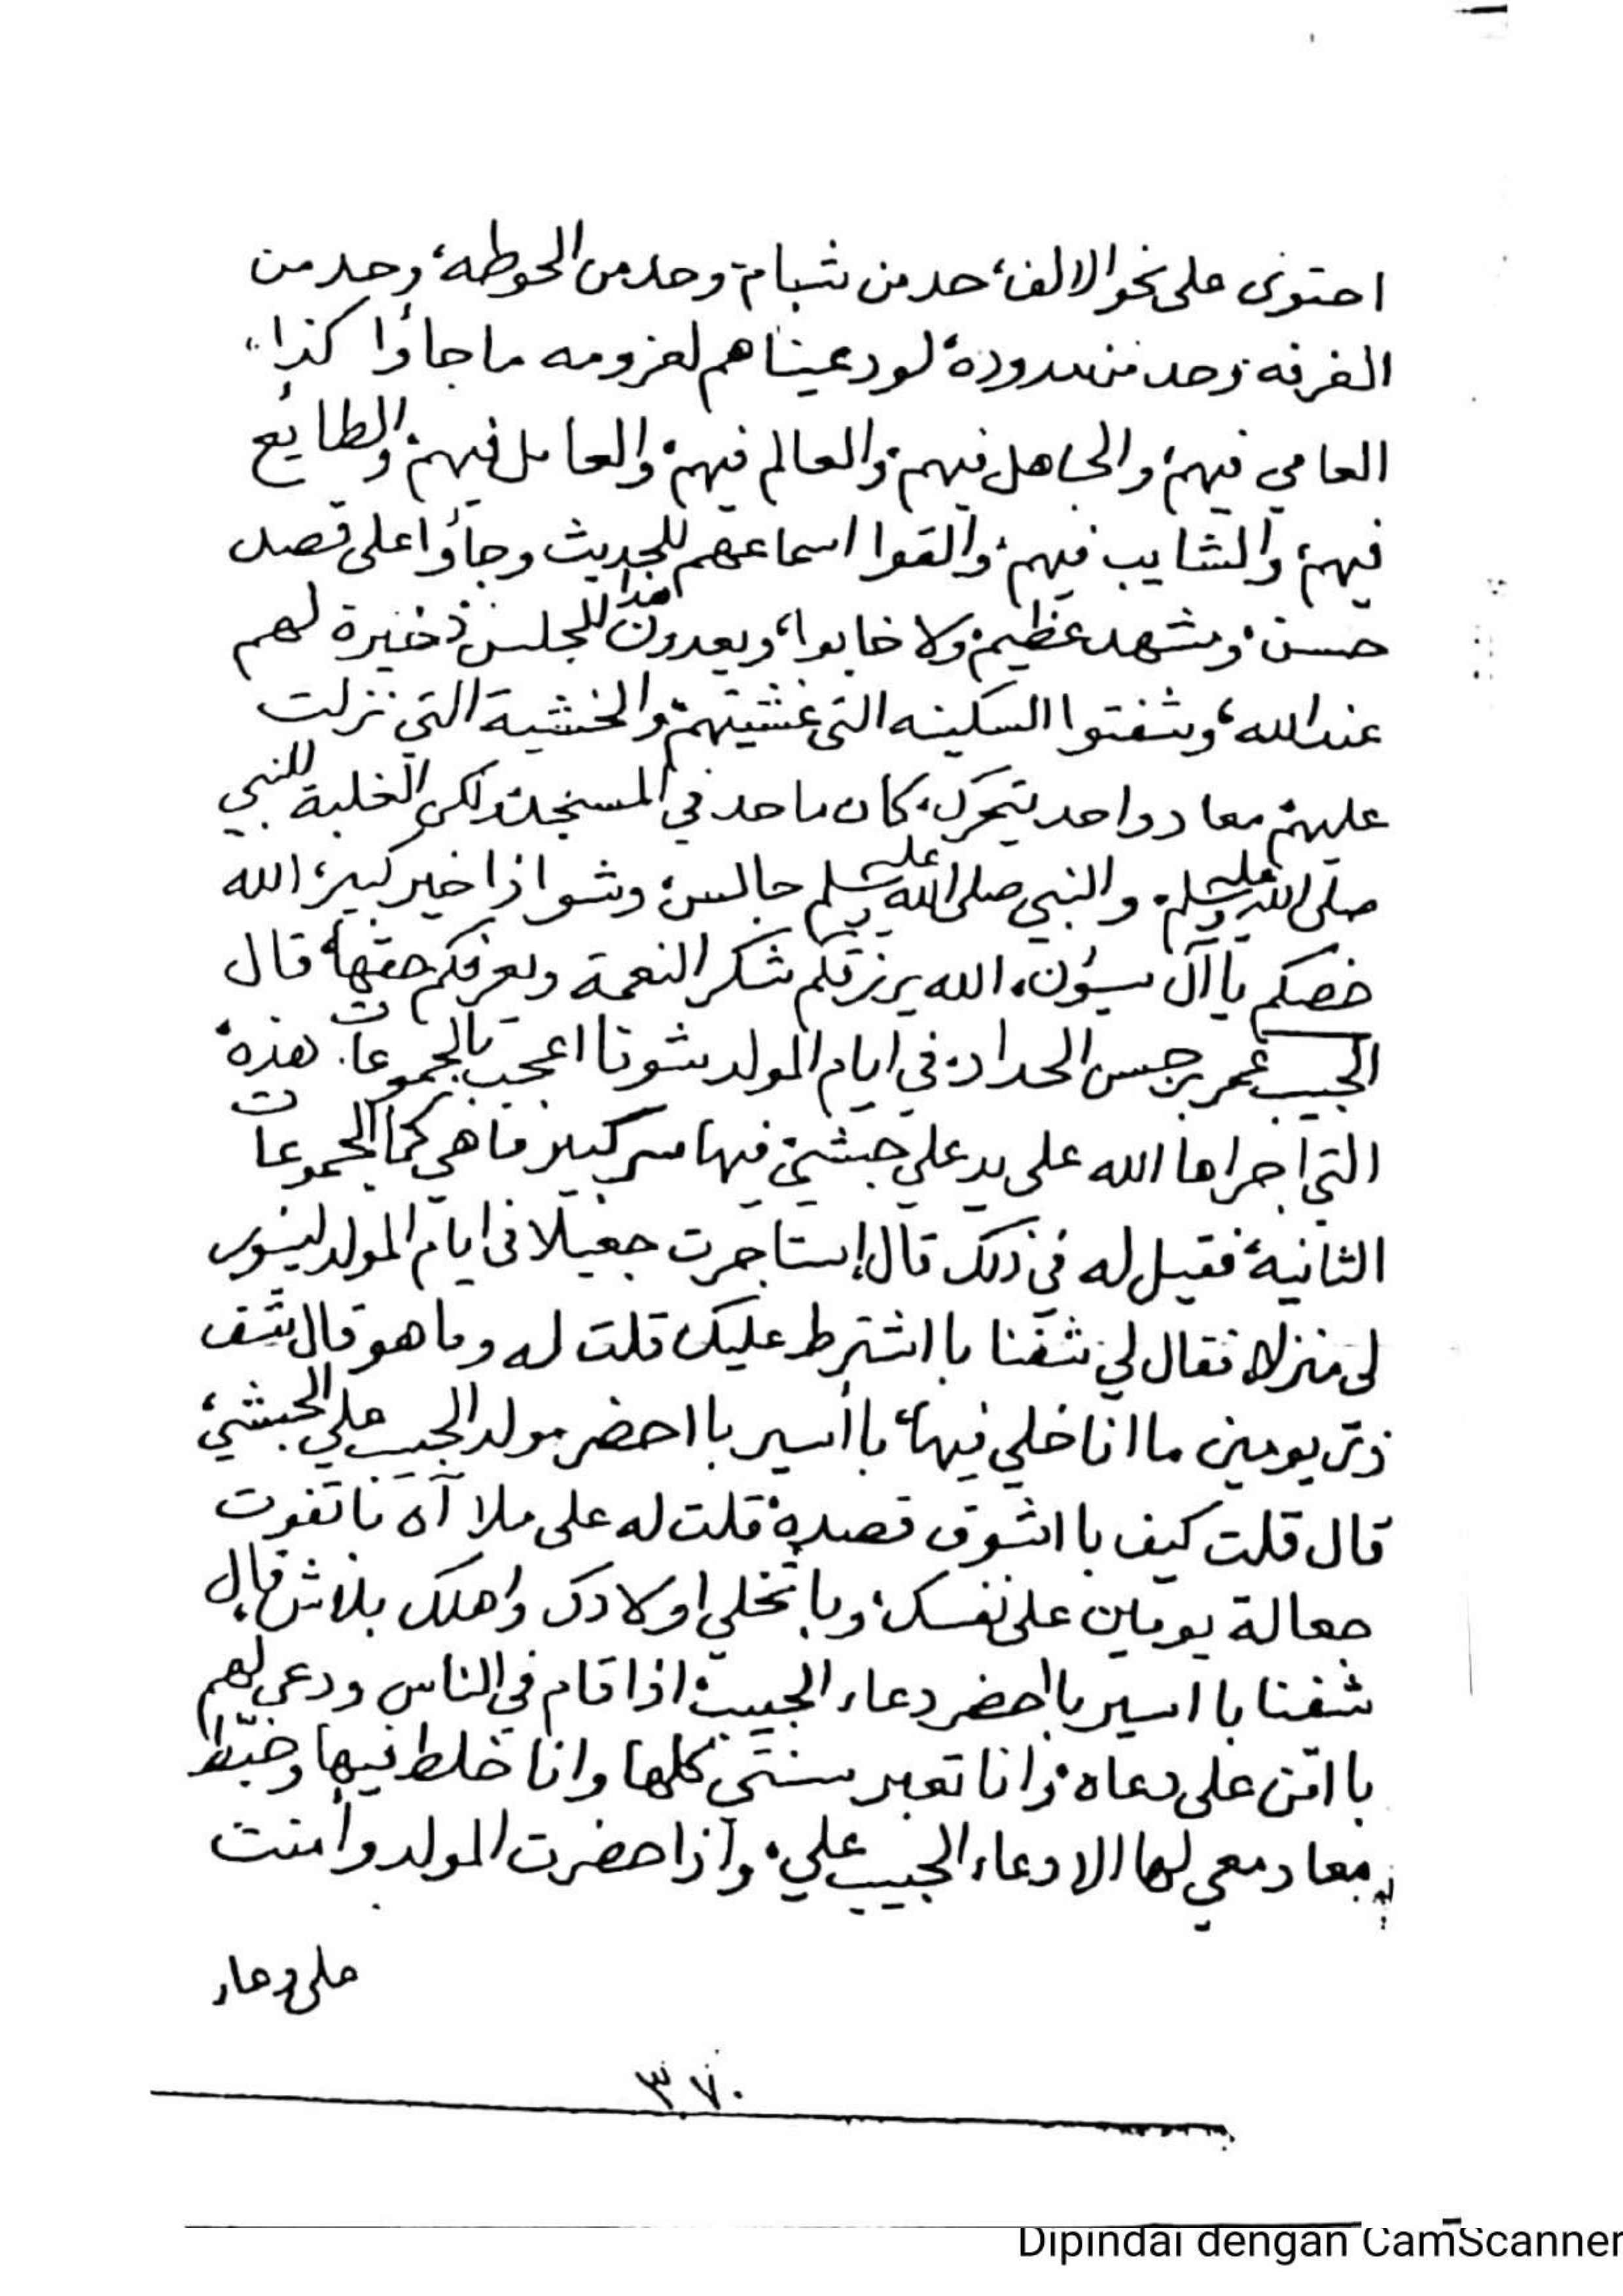 احتوى على نحو الالف، حد من شبام، وحد من الحوطه، وحد من
الغرفه وحد من سدوده لو دعيناهم لعزومه ما جاؤا كذا،
العامي فيهم، والجاهل فيهم، والعالم فيهم، والعامل فيهم، والطايع
فيهم، والشايب فيهم، والقوا اسماعهم للحديث وجاؤا على قصد
حسن، ومشهد عظيم، ولا خابوا، ويعدون هذا المجلس ذخيرة لهم
عند الله، وشفتوا السكينه التي غشيتهم، والخشية التي نزلت
عليهم، معاد واحد يتحرك، كان ماحد في المسجد، ولكن الغلبة للنبي
صلى الله عليه وسلم، والنبي صلى الله عليه وسلم جالس، وشوا ذا خير كبير، الله
خصكم يا آل سيؤن، الله يرزقكم شكر النعمة ويعرفكم حقها، قال
الحبيب عمر بن حسن الحداد، في ايام المولد شونا اعجب بالجموعات هذه
التي اجراها الله على يد علي حبشي، فيها سر كبير ما هي كما الجموعات
الثانية، فقيل له في ذلك قال إستاجرت جعيلا في ايام المولد ليسوي
لي منزلا فقال لي شفنا با اشترط عليك قلت له وما هو قال شف
ذي يومين ما انا خلي فيها، با أسير با احضر مولد الحبيب علي الحبشي،
قال قلت كيف با اشوف قصده، قلت له على ملا آه با تفوت
جعالة يومين على نفسك، وبا تخلي اولادك واهلك بلاش، قال
شفنا با اسير با احضر دعاء الحبيب، اذا قام في الناس ودعى لهم
با امن على دعاه، وانا تعبر سنتي كلها وانا خلط فيها وخبط
معاد معي لها الا دعاء الحبيب علي، وآذا حضرت المولد وأمنت
على دعاء
٣٧٠
Dipindai dengan CamScanner